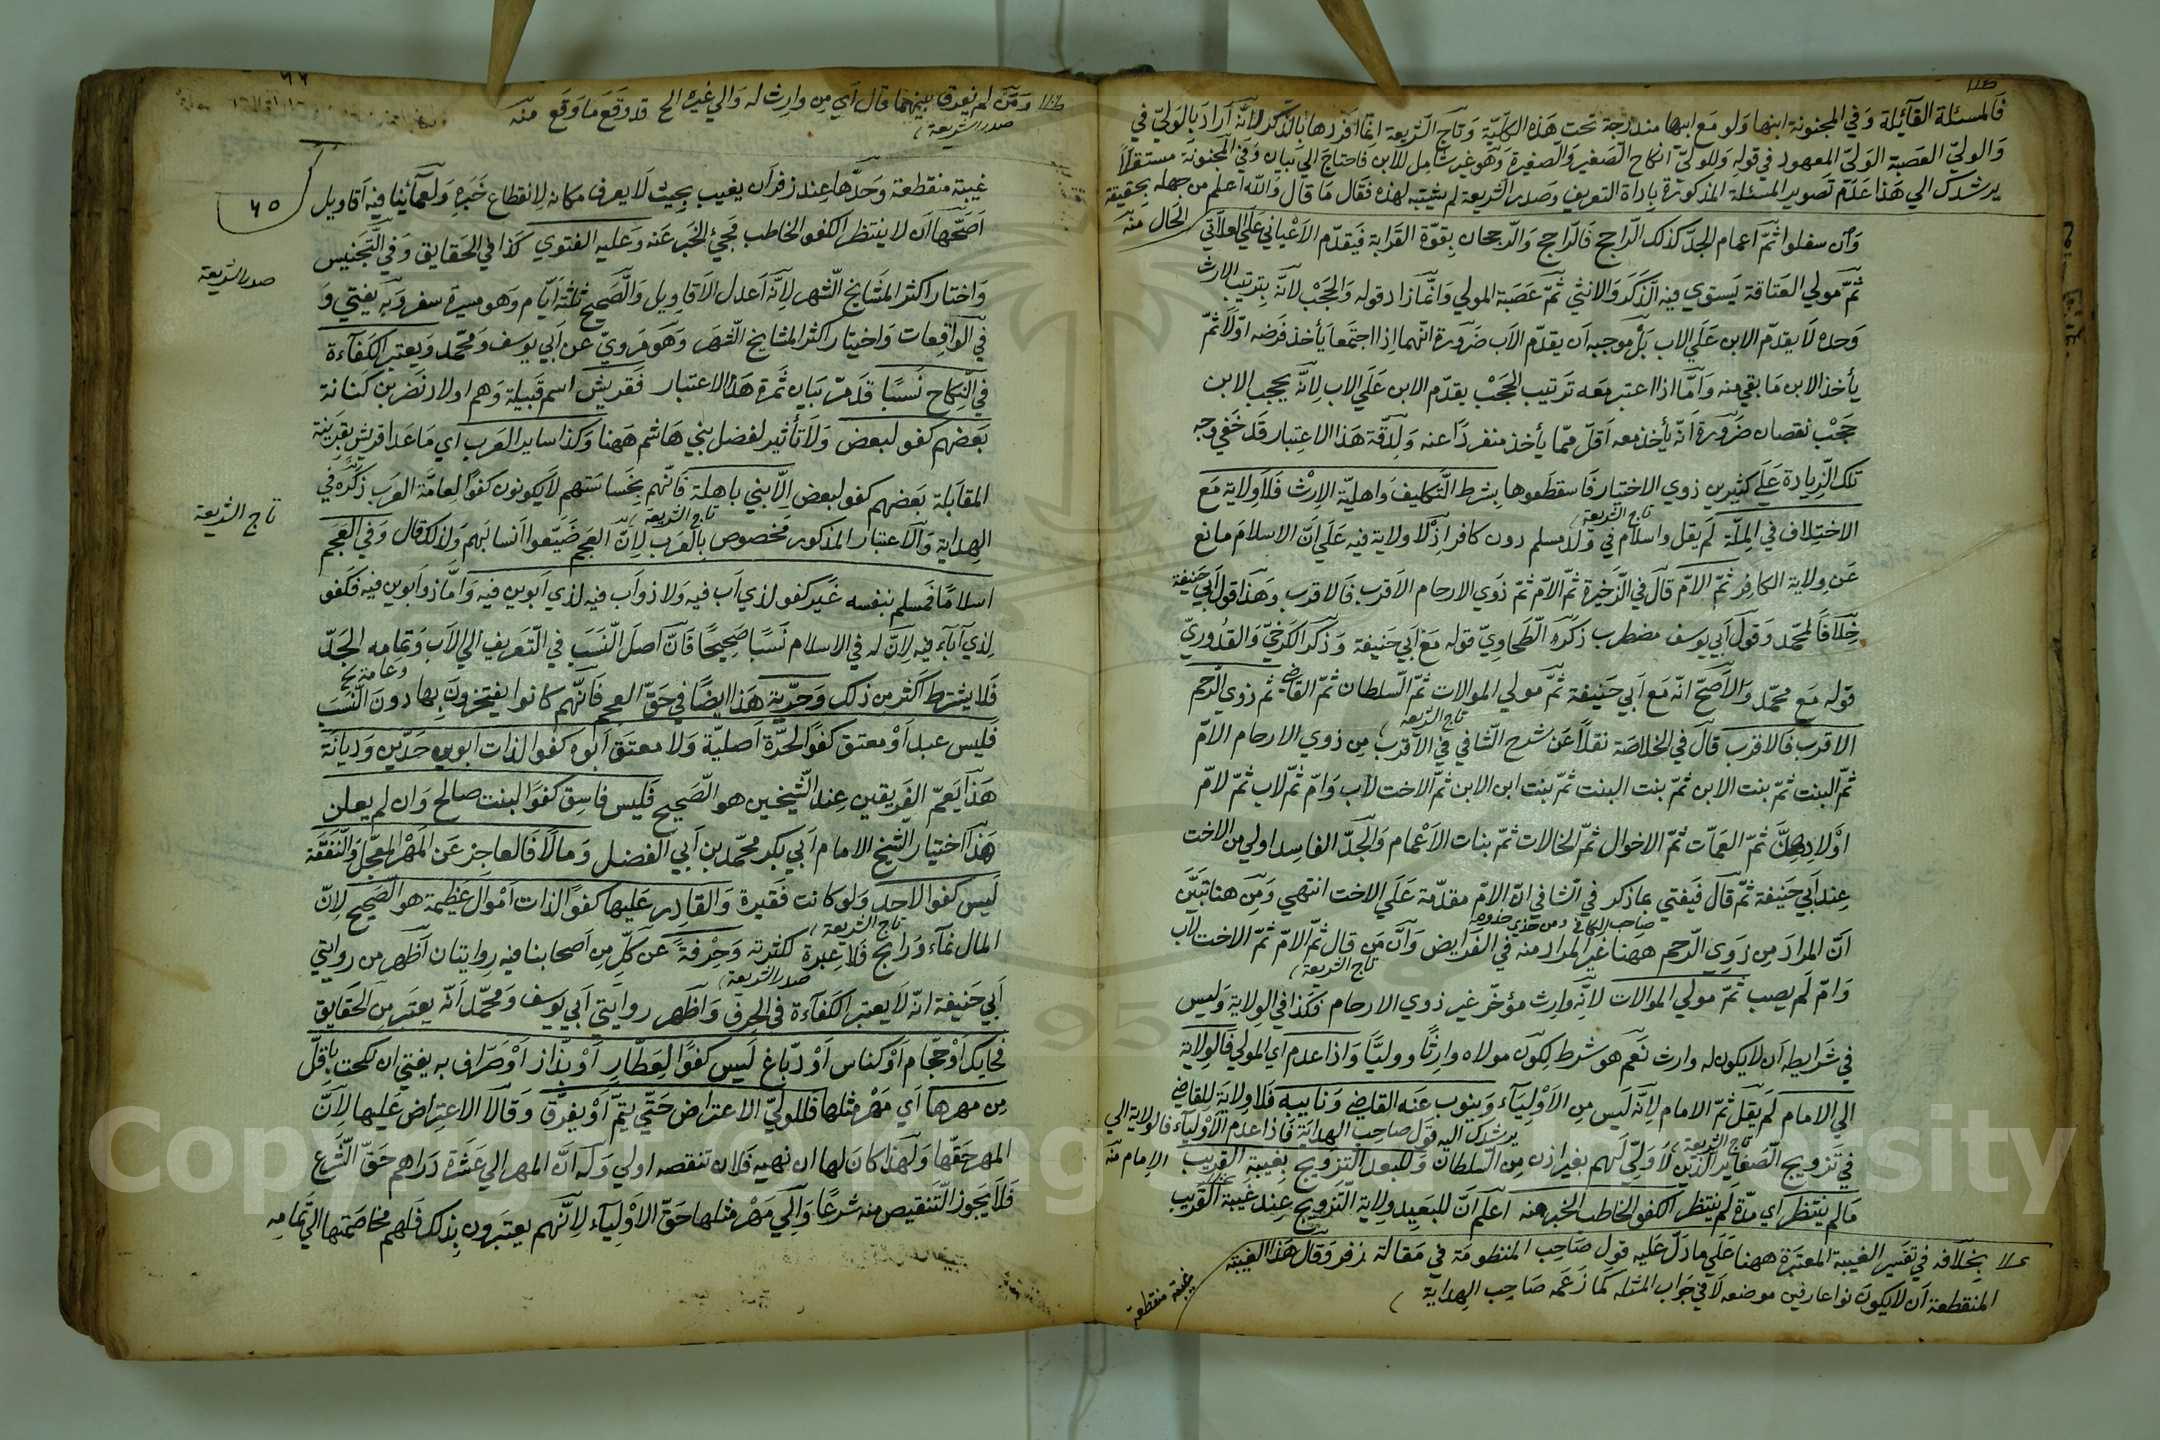 فالمسئلة القآئلة وفي المجنونة ابنها ولو مع ابيها مندرجة تحت هذه الكلية وتاج الشريعة انما افردها بالذكر لانه اراد بالولي في
والولي العصبة الولي المعهود في قوله وللولي انكاح الصغير والصغيرة وهو غير شامل للابن فاحتاج الي بيان وفي المجنونة مستقلا
يرشدك الي هذا عدم تصوير المسئلة المذكورة باداة التعريف وصدر الشريعة لم يتنبه لهذه فقال ما قال والله اعلم من جهله بحقيقة
الحال منه
وان سفلوا ثم اعمام الجد كذلك الراجح فالراجح والرجحان بقوة القرابة فيقدم الاعياني علي العلاتي
ثم مولي العتاقة يستوي فيه الذكر والانثي ثم عصبة المولي وانما زاد قوله والحجب لانه بترتيب الارث
وحده لا يقدم الابن علي الاب بل موجبه ان يقدم الاب ضرورة انهما اذا اجتمعا يأخذ فرضه اولا ثم
يأخذ الابن ما بقي منه واما اذا اعتبر معه ترتيب الحجب يقدم الابن علي الاب لانه يحجب الابن
حجب نقصان ضرورة انه يأخذ معه اقل مما يأخذ منفردا عنه ولدقة هذا الاعتبار قد خفي وجه
تلك الزيادة علي كثير من ذوي الاختيار فاسقطوها بشرط التكليف واهلية الارث فلا ولاية مع
تاج الشريعة
الاختلاف في الملة لم يقل واسلام في ولد مسلم دون كافر اذ لا ولاية فيه علي ان الاسلام مانع
عن ولاية الكافر ثم الام قال في الذخيرة ثم الام ثم ذوي الارحام الاقرب فالاقرب وهذا قول ابي حنيفة
خلافا لمحمد وقول ابي يوسف مضطرب ذكره الطحاوي قوله مع ابي حنيفة وذكر الكرخي والقدوري
قوله مع محمد والاصح انه مع ابي حنيفة ثم مولي الموالات ثم السلطان ثم القاضي ثم ذوي الرحم
تاج الشريعة
الاقرب فالاقرب قال في الخلاصة نقلا عن شرح الشافي في الاقرب من ذوي الارحام الام
ثم البنت ثم بنت الابن ثم بنت البنت ثم بنت ابن الابن ثم الاخت لاب وام ثم لاب ثم لام
اولادهن ثم العمات ثم الاخوال ثم الخالات ثم بنات الاعمام والجد الفاسد اولي من الاخت
عند ابي حنيفة ثم قال فيفتي بما ذكر في الشافي ان الام مقدمة علي الاخت انتهي ومن هنا تبين
صاحب الكافي ومن حذي حذوه
ان المراد من ذوي الرحم ههنا غير المراد منه في الفرايض وان من قال ثم الام ثم الاخت لاب
تاج الشريعة
وام لم يصب ثم مولي الموالات لانه وارث مؤخر غير ذوي الارحام فكذا في الولاية وليس
في شرايطه ان لا يكون له وارث نعم هو شرط لكون مولاه وارثا ووليا واذا عدم اي المولي فالولاية
الي الامام لم يقل ثم الامام لانه ليس من الاوليآء وينوب عنه القاضي ونايبه فلا ولاية للقاضي
يرشدك اليه قول صاحب الهداية فاذا عدم الاوليآء فالولاية الي
الامام منه
تاج الشريعة
في تزويج الصغاير الذين لا ولي لهم بغير اذن من السلطان وللبعد التزويج بغيبة القريب
ما لم ينتظر اي مدة لم ينتظر الكفو الخاطب الخبر منه اعلم ان للبعيد ولاية التزويج عند غيبة القريب
بخلافه في تفسير الغيبة المعتبرة ههنا علي ما دل عليه قول صاحب المنظومة في مقالة زفر وقال هذا الغيبة
المنقطعة ان لا يكون نواعا رفين موضعه لا في جواب المثله كما زعمه صاحب الهداية
غيبة منقطعة
ومن لم يفرق بينهما قال اي من وارث له والي غيره الخ قد وقع ما وقع منه
صدر الشريعة
غيبة منقطعة وحدها عند زفر ان يغيب بحيث لا يعرف مكانه لانقطاع خبره ولعلمآئنا فيه اقاويل
٦٥
اصحها ان لا ينتظر الكفو الخاطب مجيء الخبر عنه وعليه الفتوي كذا في الحقايق وفي التجنيس
صدر الشريعة
واختار اكثر المشايخ الشهر لانه اعدل الاقاويل والصحيح ثلثة ايام وهو مسيرة سفر وبه يفتي و
في الواقعات واختيار اكثر المشايخ الشهر وهو مروي عن ابي يوسف ومحمد ويعتبر الكفآءة
في النكاح نسبا قد مر بيان ثمرة هذا الاعتبار فقريش اسم قبيلة وهم اولاد نضر بن كنانة
بعضهم كفو لبعض ولا تأثير لفضل بني هاشم ههنا وكذا ساير العرب اي ما عدا قريش بقرينة
المقابلة بعضهم كفو لبعض الا بني باهلة فانهم بخساستهم لا يكونون كفوا لعامة العرب ذكره في
تاج الشريعة
تاج الشريعة
الهداية والاعتبار المذكور مخصوص بالعرب لان العجم ضيعوا انسابهم ولذلك قال وفي العجم
اسلاما فمسلم بنفسه غير كفو لذي اب فيه ولا ذو اب فيه لذي ابوين فيه واما ذو ابوين فيه فكفو
لذي آبآء فيه لان له في الاسلام نسبا صحيحا فان اصل النسب في التعريف الي الاب وتمامه الجد
فلا يشترط اكثر من ذلك وحرية هذا ايضا في حق العجم فانهم كانوا يفتخرون بها دون النسب
فليس عبد او معتق كفوا لحرة اصلية ولا معتق ابوه كفوا لذات ابوين حرين وديانة
هذا يعم الفريقين عند الشيخين هو الصحيح فليس فاسق كفوا لبنت صالح وان لم يعلن
هذا اختيار الشيخ الامام ابي بكر محمد بن ابي الفضل ومالا فالعاجز عن المهر المعجل والنفقة
ليس كفوا لاحد ولو كانت فقيرة والقادر عليها كفوا لذات اموال عظيمة هو الصحيح لان
تاج الشريعة
المال غآد ورايح فلا عبرة لكثرته وحرفة عن كل من اصحابنا فيه روايتان اظهر من روايتي
صدر الشريعة
ابي حنيفة انه لا يعتبر الكفآءة في الحرف واظهر روايتي ابي يوسف ومحمد انه يعتبر من الحقايق
فحايك او حجام او كناس او دباغ ليس كفوا لعطار او بزاز او صراف به يفتي ان نكحت باقل
من مهرها اي مهر مثلها فللولي الاعتراض حتي يتم او يفرق وقالا الاعتراض عليها لان
المهر حقها ولهذا كان لها ان تهبه فلان تنقصه اولي وله ان المهر الي عشرة دراهم حق الشرع
فلا يجوز التنقيص منه شرعا والي مهر مثلها حق الاوليآء لانهم يعتبرون بذلك فلهم مخاصمتها الي تمامه
Copyright © King Saud University